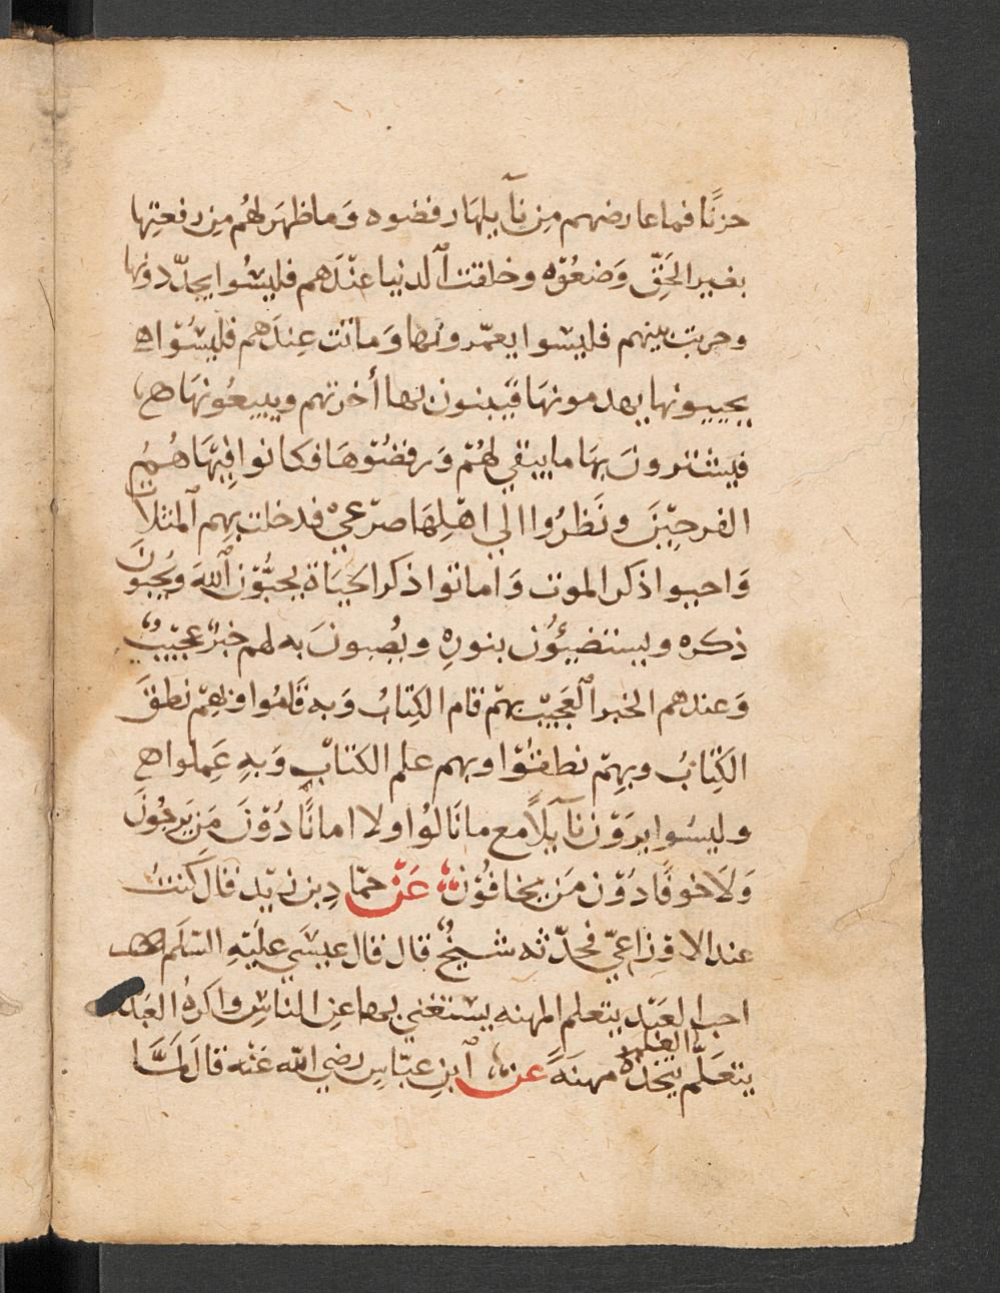 حزنًا فما عارضهم من نآيلها رفضوه وَما ظهرَ لهُم مِن رفعتِها
بغير الحَقّ وَضعُوْه وخلقت الدنيا عنْدَهم فليسُوا يجدّدونها
وخربت بينهم فليسوا يعمّرونها وَماتت عِندَهم فليسُوْا ه
يحييونها يهدمونهَا فيَبنون بها أخرتهم ويبيعُونهَا ه
فيشترونَ بهَا ما يبقي لهُمْ وَرفضُوْهَا فكانوا فِيْهَا هُمُ
الفرحِيْنَ ونَظرُوا الي اهْلِهَا صرْعيْ قد خلت بِهِم المثلاث
وَاحيوا ذكر الموت وَاماتوا ذكر الحيَاة يحبُّوْن اللهَ ويحُبونَ
ذكره ويستضيئُوْن بنورِهِ ويُضِيونَ به لهم خبرٌ عجيْبٌ
وَعندهم الخبر العَجيْب بهمْ قام الكِتابُ وَبه قَامُوا وَبهِمْ نطقَ
الكِتَابُ وبهِمْ نطقُوْا وبهم علم الكتابْ وَبهِ عَملوا ه
وليسُوا يرَوْن نآيلًا مع ما نَالوُا ولا امانًا دُوْنَ مَن يَرجُونَ
وَلَا خوفًا دَوْن مَن يخافُوْن عَنْ حمّاد بن زيْد قال كنتُ
عند الاوزاعيّ فحدّثه شيخٌ قال قال عيسَي علَيْهِ السّلَم
احب العَبْد يتعلم المهنه يستغني بها عن الناسِ واكرهُ العَبد
يتعَلّم العلم يتخذهُ مهنَةً عن ابنِ عبّاسٍ رضي الله عَنْه قالَ لمَّا